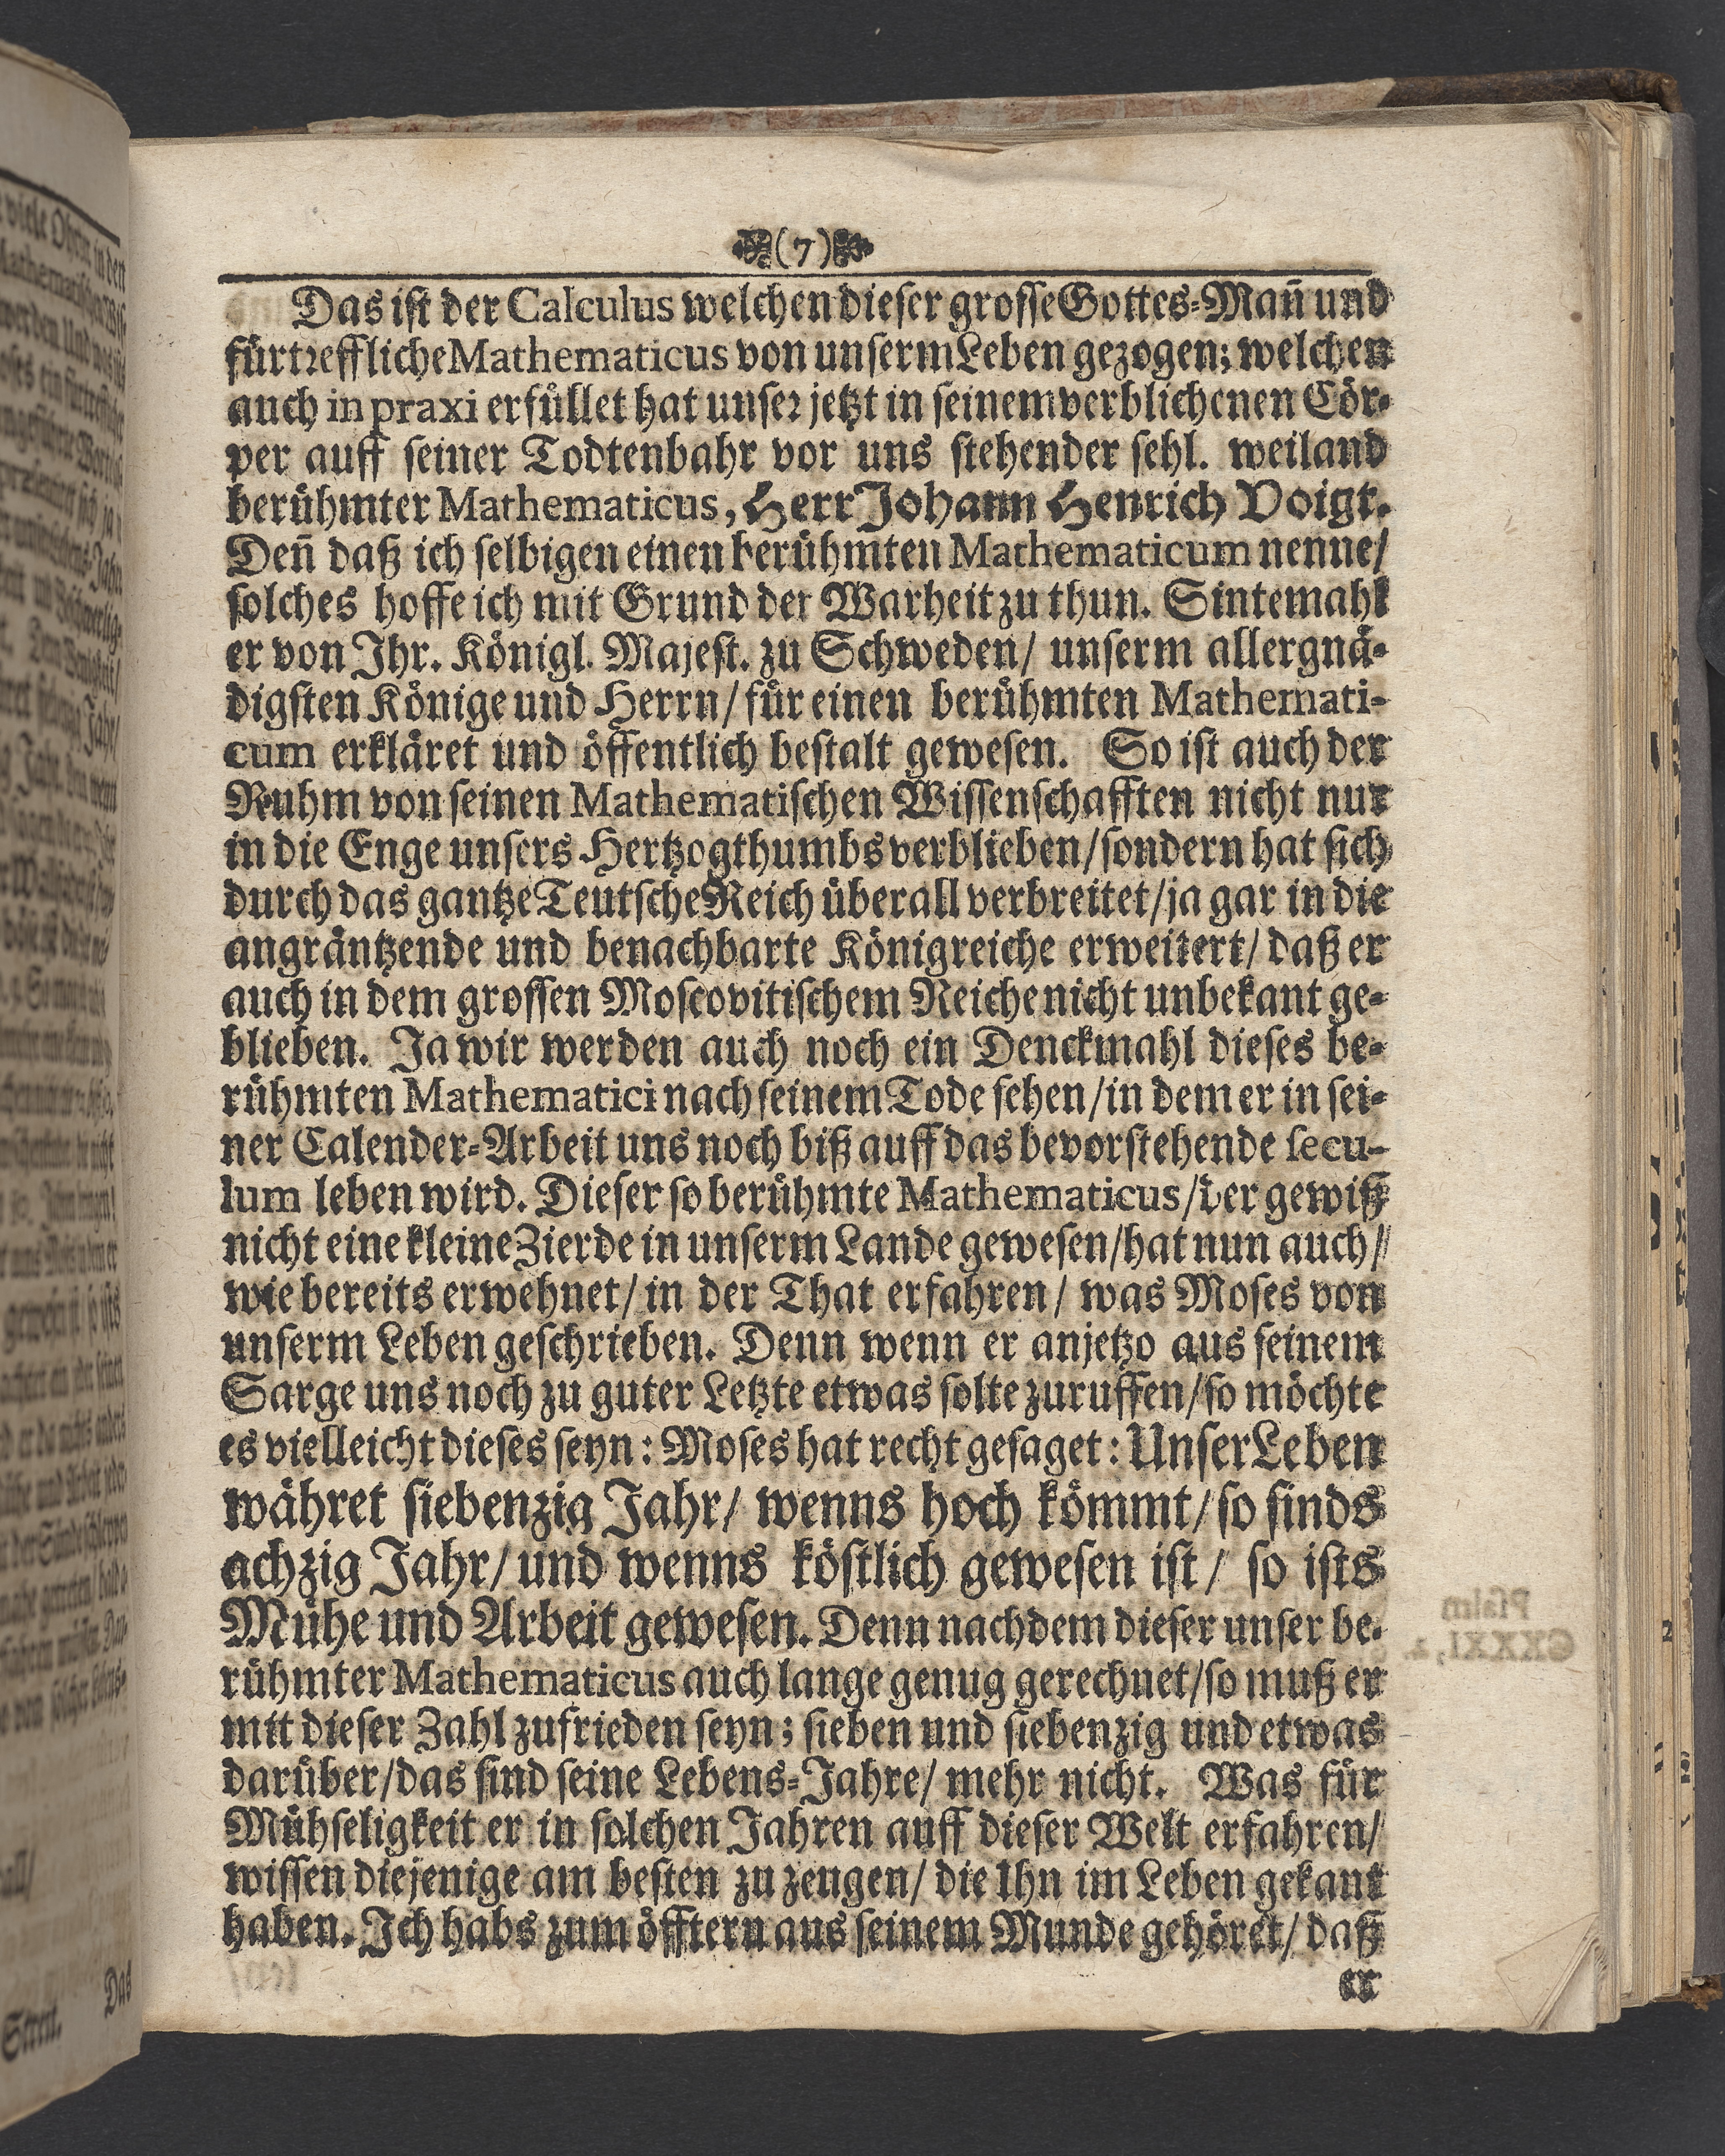 (7)
Das ist der Calculus welchen dieser grosse Gottes-Mañ und
fürtreffliche Mathematicus von unserm Leben gezogen; welchen
auch in praxi erfüllet hat unser jetzt in seinem verblichenen Cör-
per auff seiner Todtenbahr vor uns stehender sehl. weiland
berühmter Mathematicus, Herr Johann Henrich Voigt.
Deñ daß ich selbigen einen berühmten Mathematicum nenne/
solches hoffe ich mit Grund der Warheit zu thun. Sintemahl
er von Ihr. Königl. Majest. zu Schweden/ unserm allergnä-
digsten Könige und Herrn/ für einen berühmten Mathemati-
cum erkläret und öffentlich bestalt gewesen. So ist auch der
Ruhm von seinen Mathematischen Wissenschafften nicht nur
in die Enge unsers Hertzogthumbs verblieben/ sondern hat sich
durch das gantze Teutsche Reich überall verbreitet/ ja gar in die
angräntzende und benachbarte Königreiche erweitert/ daß er
auch in dem grossen Moscovitischem Reiche nicht unbekant ge-
blieben. Ja wir werden auch noch ein Denckmahl dieses be-
rühmten Mathematici nach seinem Tode sehen/ in dem er in sei-
ner Calender-Arbeit uns noch biß auff das bevorstehende secu-
lum leben wird. Dieser so berühmte Mathematicus/ der gewiß
nicht eine kleine Zierde in unserm Lande gewesen/ hat nun auch/
wie bereits erwehnet/ in der That erfahren/ was Moses von
unserm Leben geschrieben. Denn wenn er anjetzo aus seinem
Sarge uns noch zu guter Letzte etwas solte zuruffen/ so möchte
es vielleicht dieses seyn: Moses hat recht gesaget: Unser Leben
währet siebenzig Jahr/ wenns hoch kömmt/ so sinds
achzig Jahr/ und wenns köstlich gewesen ist/ so ists
Mühe und Arbeit gewesen. Denn nachdem dieser unser be-
rühmter Mathematicus auch lange genug gerechnet/ so muß er
mit dieser Zahl zufrieden seyn; sieben und siebenzig und etwas
darüber/ das sind seine Lebens-Jahre/ mehr nicht. Was für
Mühseligkeit er in solchen Jahren auff dieser Welt erfahren/
wissen diejenige am besten zu zeugen/ die Ihn im Leben gekant
haben. Ich habs zum öfftern aus seinem Munde gehöret/ daß
er